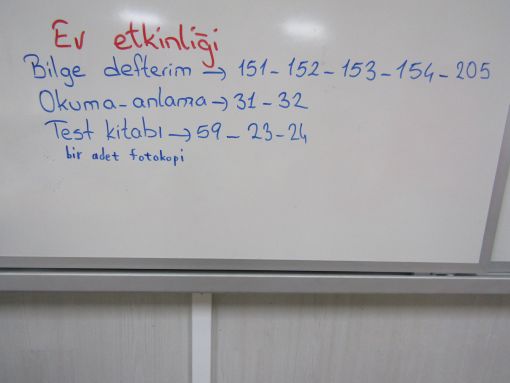 Ev etkinliği
Bilge defterim → 151 - 152 - 153 - 154 - 205
Okuma-anlama → 31 - 32
Test kitabı → 59 - 23 - 24
bir adet fotokopi